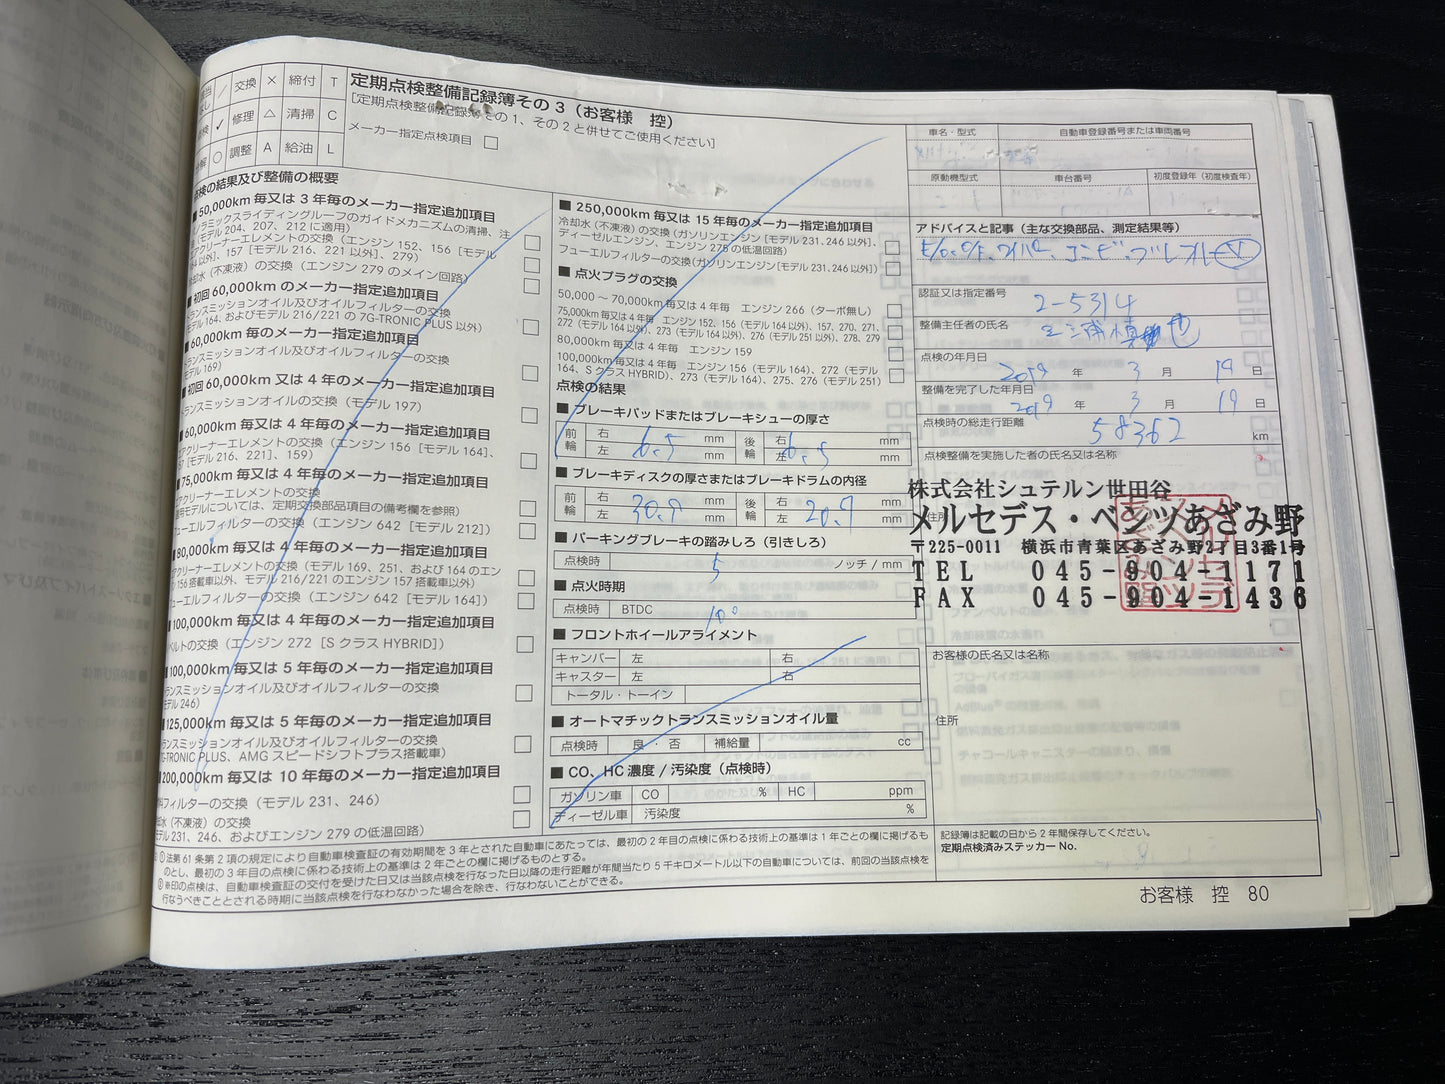 交換 × 締付 T
✓ 修理 △ 清掃 C
○ 調整 A 給油 L
定期点検整備記録簿その3(お客様 控)
[定期点検整備記録簿その1、その2と併せてご使用ください]
メーカー指定点検項目 □
点検の結果及び整備の概要
■ 50,000km 毎又は 3 年毎のメーカー指定追加項目
ラミックスライディングルーフのガイドメカニズムの清掃、注
(モデル 204、207、212 に適用)
アクリーナーエレメントの交換(エンジン 152、156[モデル
以外]、157[モデル 216、221 以外]、279)
却水(不凍液)の交換(エンジン 279 のメイン回路)
初回 60,000km のメーカー指定追加項目
ンスミッションオイル及びオイルフィルターの交換
モデル 164、およびモデル 216/221 の 7G-TRONIC PLUS 以外)
60,000km 毎のメーカー指定追加項目
ランスミッションオイル及びオイルフィルターの交換
モデル 169)
初回 60,000km 又は 4 年毎のメーカー指定追加項目
ランスミッションオイルの交換(モデル 197)
60,000km 毎又は 4 年毎のメーカー指定追加項目
アクリーナーエレメントの交換(エンジン 156[モデル 164]、
157[モデル 216、221]、159)
75,000km 毎又は 4 年毎のメーカー指定追加項目
アクリーナーエレメントの交換
号モデルについては、定期交換部品項目の備考欄を参照)
ューエルフィルターの交換(エンジン 642[モデル 212])
80,000km 毎又は 4 年毎のメーカー指定追加項目
アクリーナーエレメントの交換(モデル 169、251、および 164 のエン
156 搭載車以外、モデル 216/221 のエンジン 157 搭載車以外)
ューエルフィルターの交換(エンジン 642[モデル 164])
100,000km 毎又は 4 年毎のメーカー指定追加項目
ベルトの交換(エンジン 272[S クラス HYBRID])
100,000km 毎又は 5 年毎のメーカー指定追加項目
ランスミッションオイル及びオイルフィルターの交換
モデル 246)
125,000km 毎又は 5 年毎のメーカー指定追加項目
ランスミッションオイル及びオイルフィルターの交換
7G-TRONIC PLUS、AMG スピードシフトプラス搭載車)
200,000km 毎又は 10 年毎のメーカー指定追加項目
料フィルターの交換(モデル 231、246)
却水(不凍液)の交換
モデル 231、246、およびエンジン 279 の低温回路)
■ 250,000km 毎又は 15 年毎のメーカー指定追加項目
冷却水(不凍液)の交換(ガソリンエンジン[モデル 231、246 以外]、
ディーゼルエンジン、エンジン 275 の低温回路)
フューエルフィルターの交換(ガソリンエンジン[モデル 231、246 以外])
■ 点火プラグの交換
50,000 ~ 70,000km 毎又は 4 年毎 エンジン 266(ターボ無し)
75,000km 毎又は 4 年毎 エンジン 152、156(モデル 164 以外)、157、270、271、
272(モデル 164 以外)、273(モデル 164 以外)、276(モデル 251 以外)、278、279
80,000km 毎又は 4 年毎 エンジン 159
100,000km 毎又は 4 年毎 エンジン 156(モデル 164)、272(モデル
164、S クラス HYBRID)、273(モデル 164)、275、276(モデル 251)
点検の結果
■ ブレーキパッドまたはブレーキシューの厚さ
前輪 右 左 6.5 mm mm 後輪 右 左 6.5 mm mm
■ ブレーキディスクの厚さまたはブレーキドラムの内径
前輪 右 左 30.9 mm mm 後輪 右 左 20.9 mm mm
■ パーキングブレーキの踏みしろ(引きしろ)
点検時 5 ノッチ / mm
■ 点火時期
点検時 BTDC 10°
■ フロントホイールアライメント
キャンバー 左 右
キャスター 左 右
トータル・トーイン
■ オートマチックトランスミッションオイル量
点検時 良 ・ 否 補給量 cc
■ CO、HC 濃度 / 汚染度(点検時)
ガソリン車 CO % HC ppm
ディーゼル車 汚染度 %
車名・型式 自動車登録番号または車両番号
原動機型式 車台番号 初度登録年(初度検査年)
アドバイスと記事(主な交換部品、測定結果等)
認証又は指定番号
2-5314
整備主任者の氏名
点検の年月日
2019 年 3 月 19 日
整備を完了した年月日
2019 年 3 月 19 日
点検時の総走行距離
58362 km
点検整備を実施した者の氏名又は名称
株式会社シュテルン世田谷
住所
メルセデス・ベンツあざみ野
〒225-0011 横浜市青葉区あざみ野2丁目3番1号
TEL 045-904-1171
FAX 045-904-1436
お客様の氏名又は名称
住所
記録簿は記載の日から 2 年間保存してください。
定期点検済みステッカー No.
① 法第 61 条第 2 項の規定により自動車検査証の有効期間を 3 年とされた自動車にあたっては、最初の 2 年目の点検に係わる技術上の基準は 1 年ごとの欄に掲げるも
のとし、最初の 3 年目の点検に係わる技術上の基準は 2 年ごとの欄に掲げるものとする。
② ※印の点検は、自動車検査証の交付を受けた日又は当該点検を行なった日以降の走行距離が年間当たり 5 千キロメートル以下の自動車については、前回の当該点検を
行なうべきこととされる時期に当該点検を行なわなかった場合を除き、行なわないことができる。
お客様 控 80